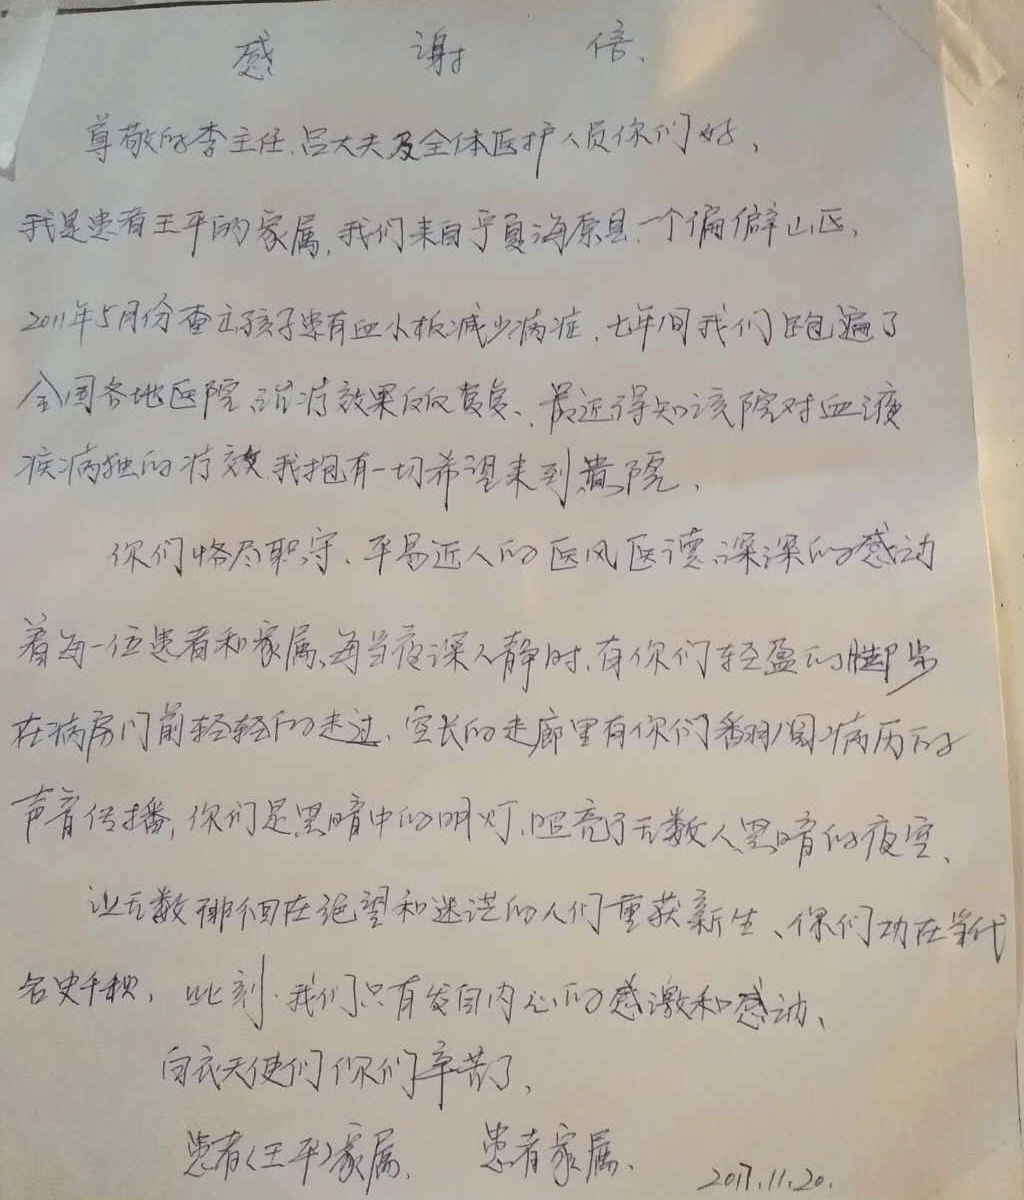 感 谢 信.
尊敬的李主任.吕大夫及全体医护人员你们好、
我是患者王平的家属,我们来自宁夏海原县.一个偏僻山区、
2011年5月份查出孩子患有血小板减少病症.七年间我们跑遍了
全国各地医院,治疗效果反反复复、最近得知该院对血液
疾病独的疗效.我抱有一切希望来到贵院.
你们恪尽职守、平易近人的医风医德,深深的感动
着每一位患者和家属,每当夜深人静时.有你们轻盈的脚步
在病房门前轻轻的走过.空长的走廊里有你们翻阅病历的
声音传播,你们是黑暗中的明灯.照亮了无数人黑暗的夜空、
让无数徘徊在绝望和迷茫的人们重获新生、你们功在当代
名史千秋, 此刻.我们只有发自内心的感激和感动、
白衣天使们你们辛苦了、
患者(王平)家属. 患者家属.
2017.11.20.